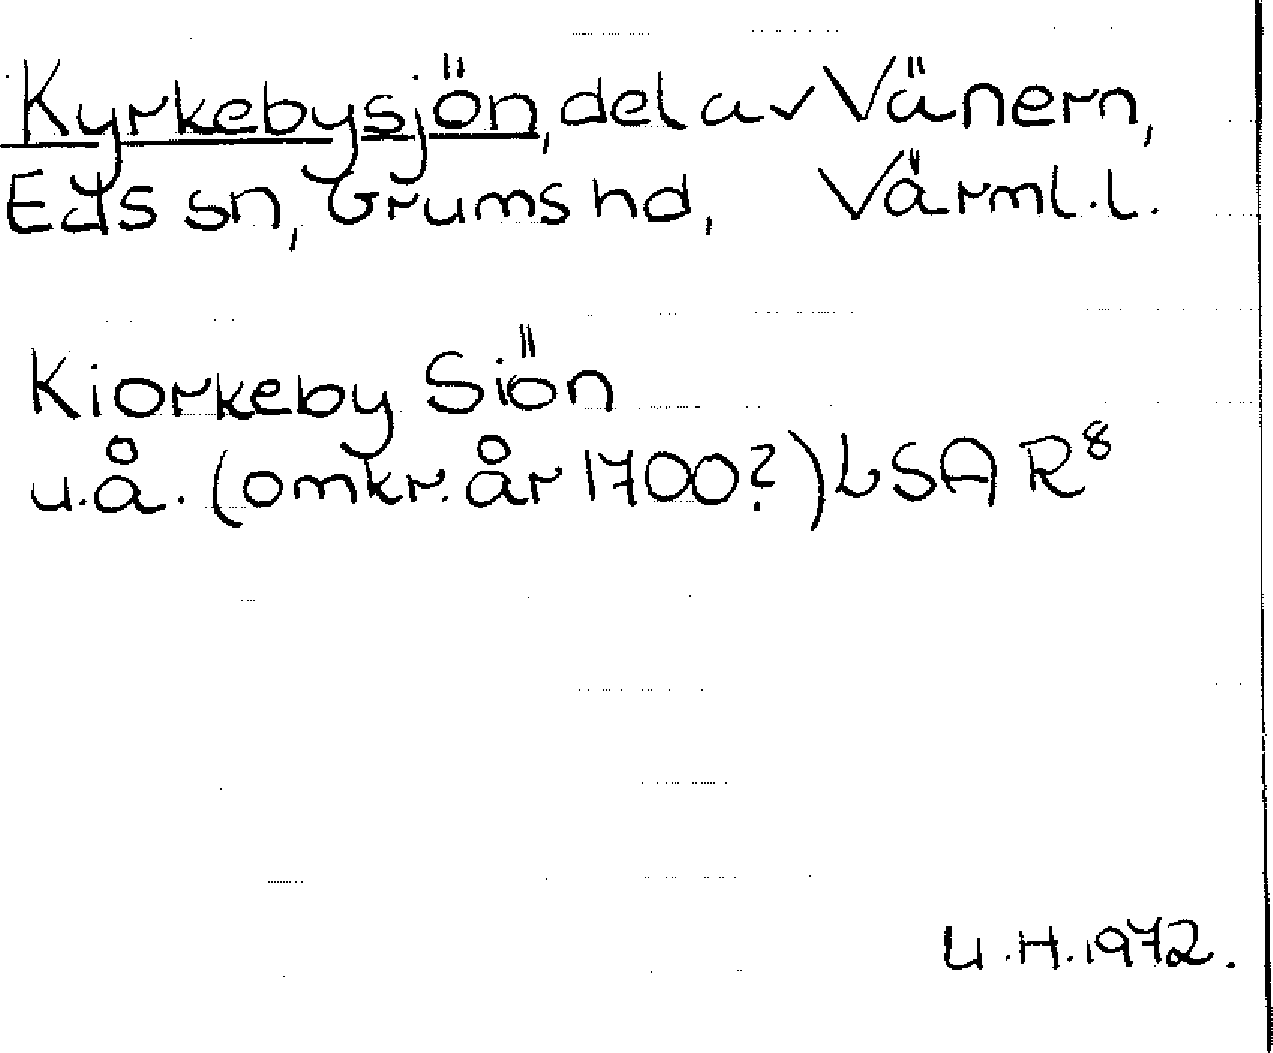 Kyrkebysjön, del av Vänern,
Eds sn, Grums hd, Värml.l.
Kiorkeby Siön
u.å. (omkr. år 1700?) LSA R8
U.H. 1972.